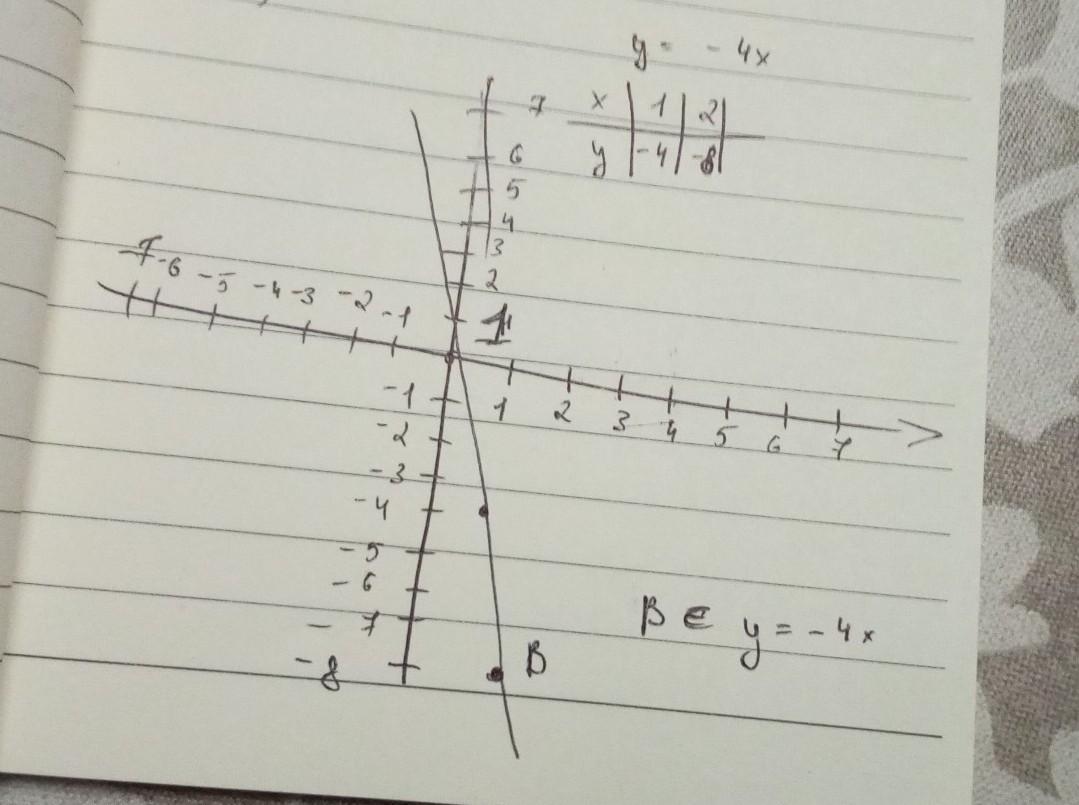 y = - 4x
x | 1 | 2 |
y | -4 | -8 |
7
6
5
4
3
2
1
-7 -6 -5 -4 -3 -2 -1
1 2 3 4 5 6 7
-1
-2
-3
-4
-5
-6
-7
-8
B
B ∈ y = -4x